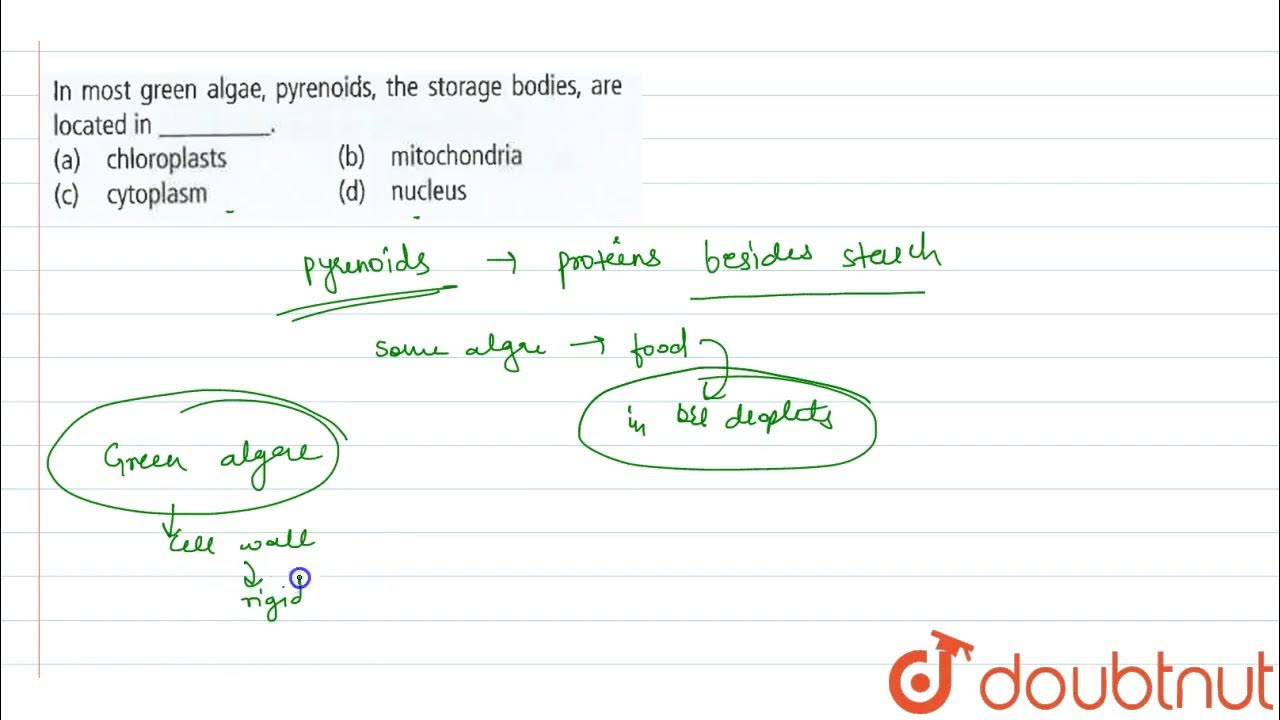 In most green algae, pyrenoids, the storage bodies, are
located in __________.
(a) chloroplasts (b) mitochondria
(c) cytoplasm (d) nucleus
pyrenoids → proteins besides starch
some algae → food
in oil droplets
Green algae
cell wall
rigid
doubtnut